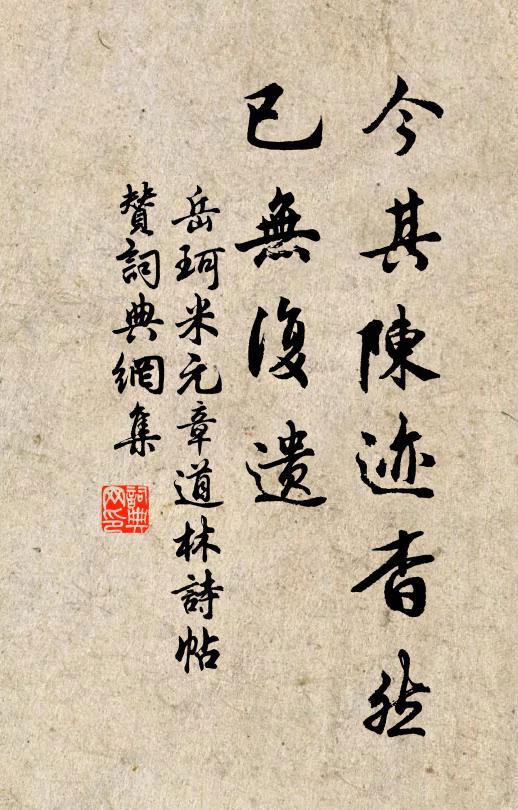 今其陳迹杳然
已無復遺
岳珂米元章道林詩帖
贊詞典網集
詞典网印